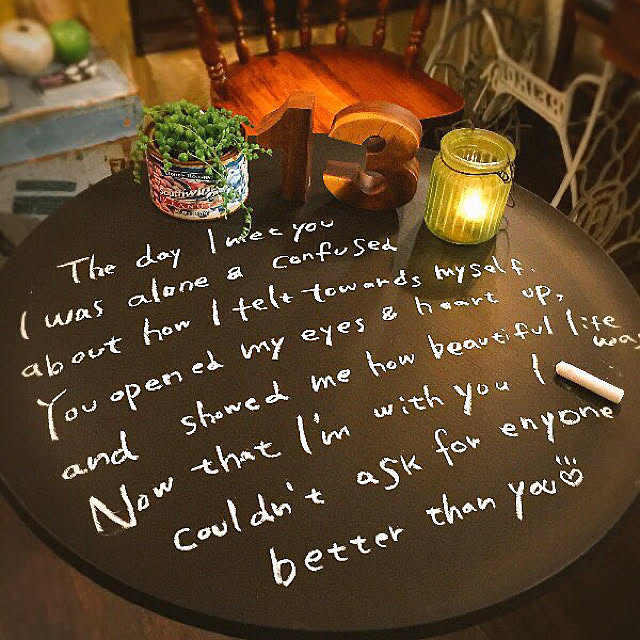 13
The day I met you
I was alone & confused
about how I felt towards myself.
You opened my eyes & heart up,
and showed me how beautiful life was
Now that I'm with you I
couldn't ask for enyone
better than you